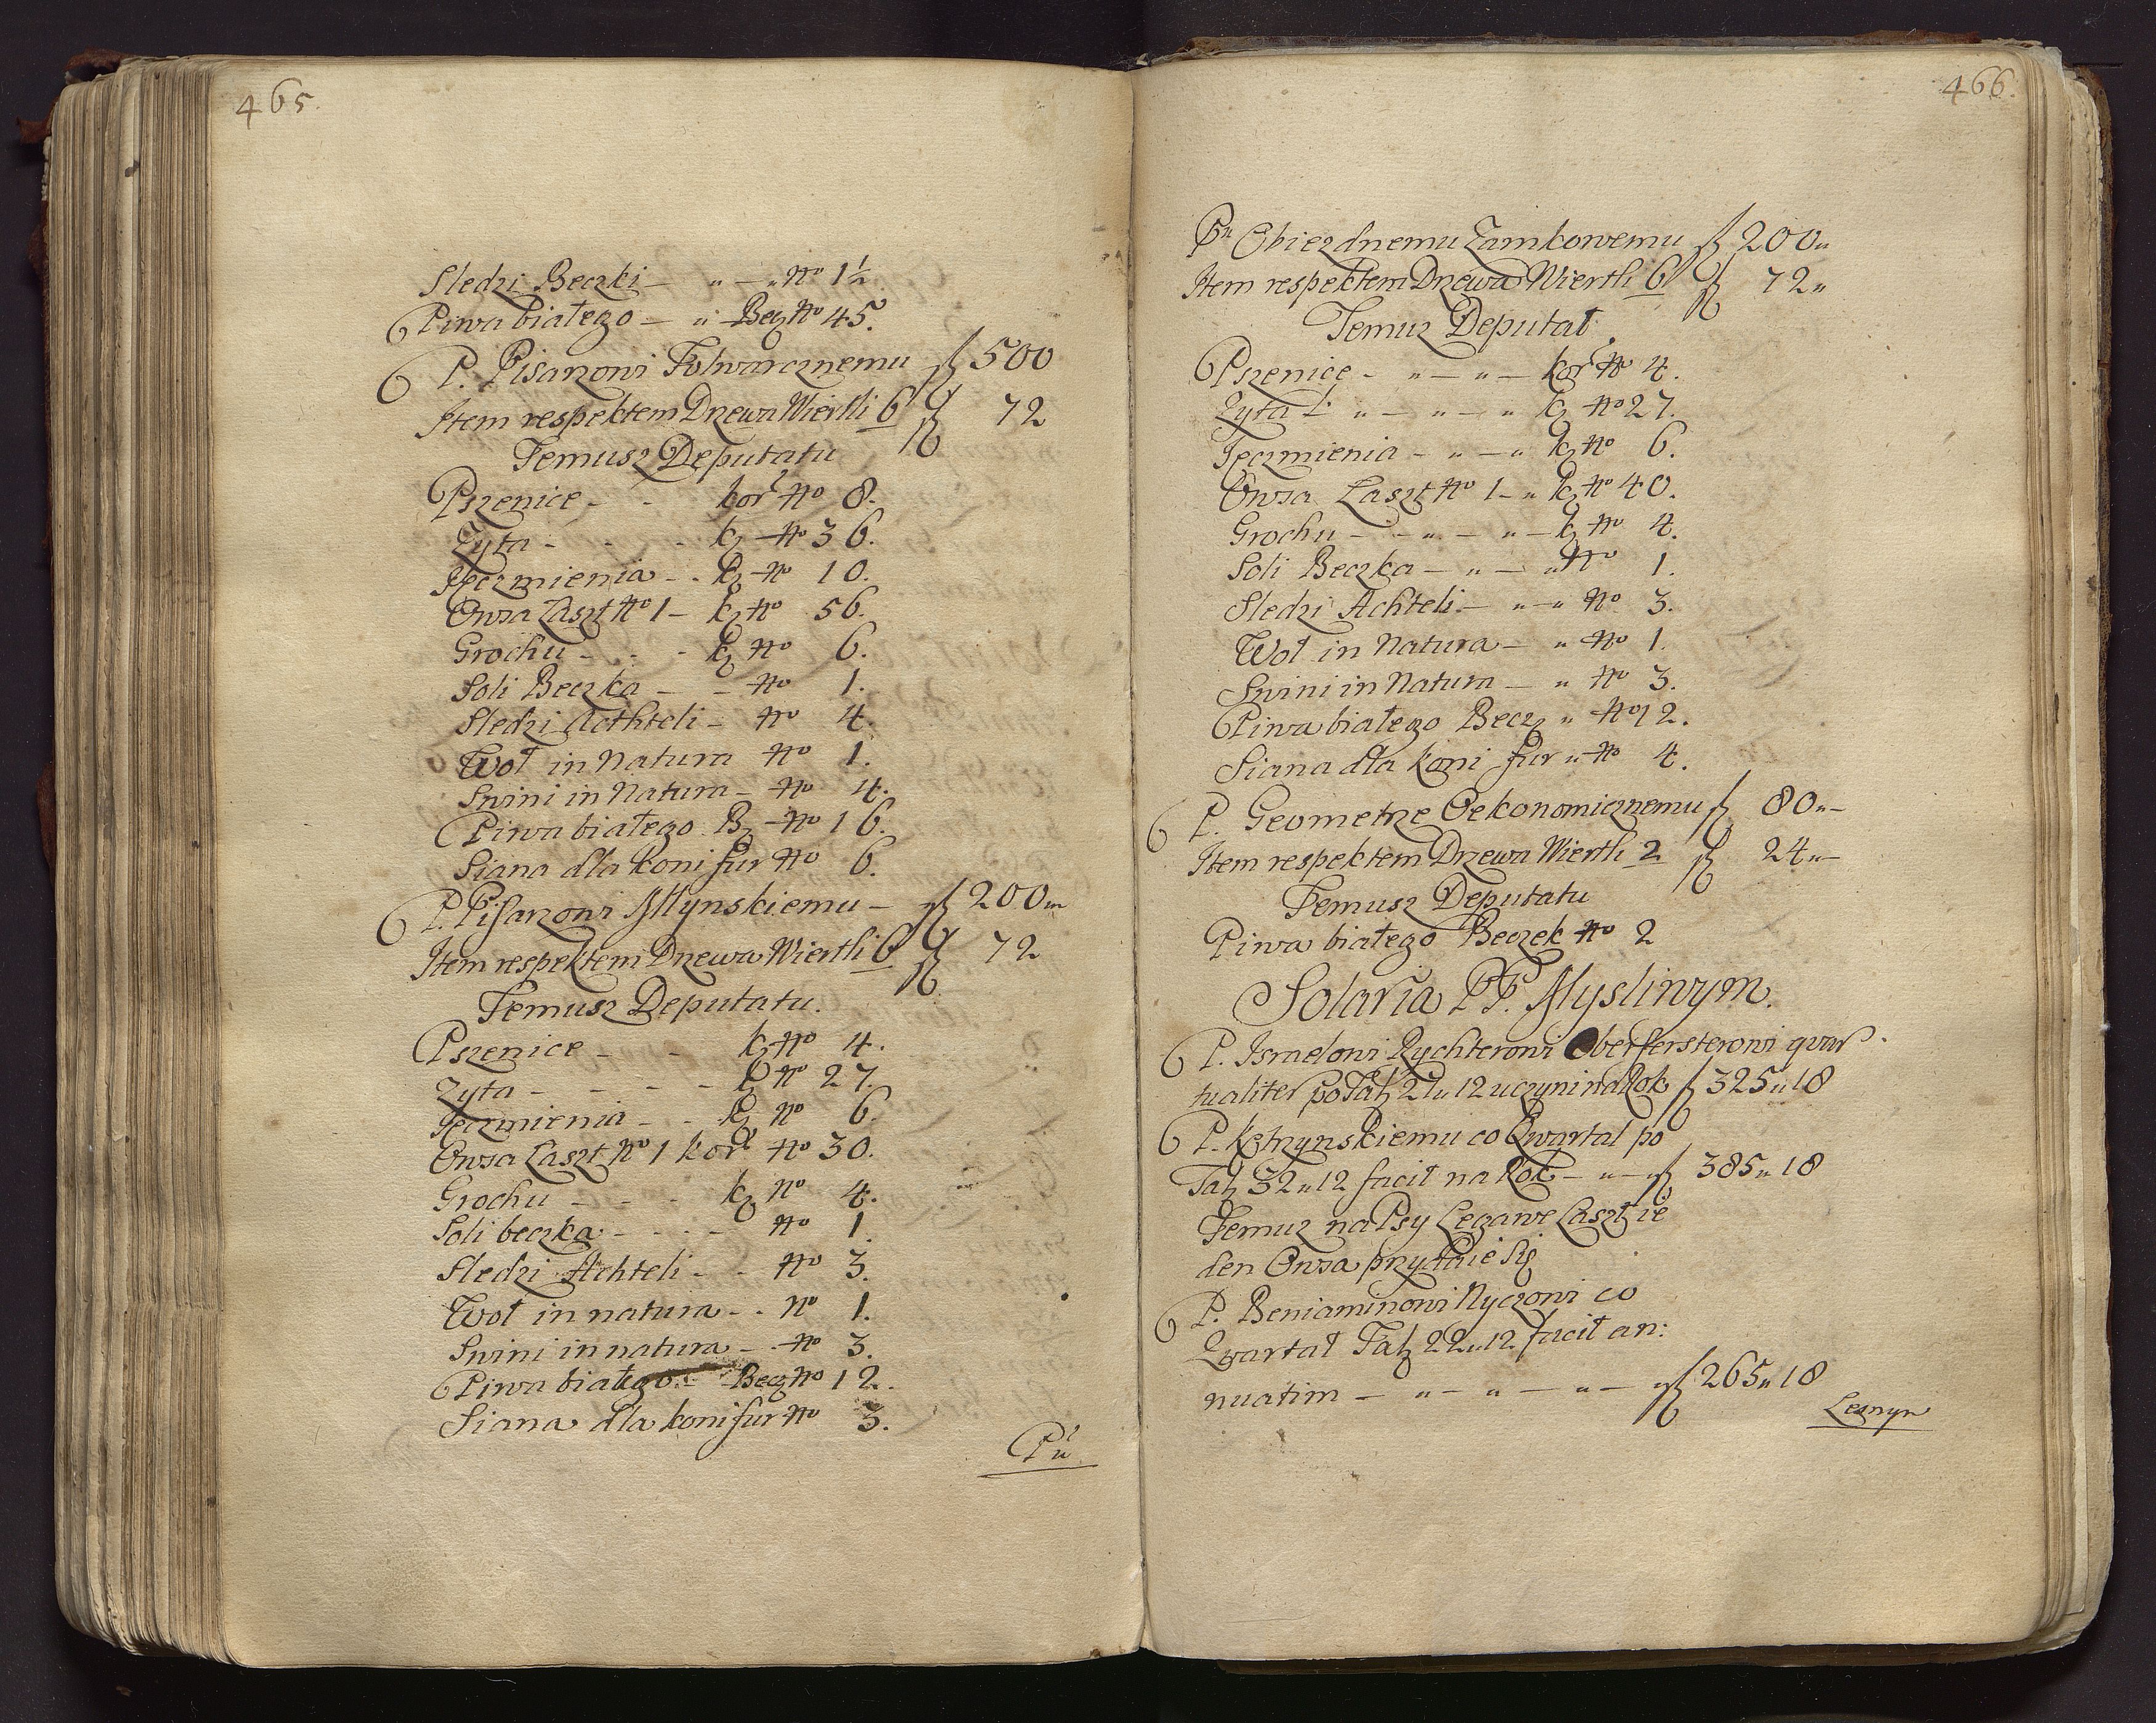 465.
Sledzi Beczki — „ — „ No 1½
Piwa białego — „ — Becz No 45.
P. Pisarzowi Folwarcznemu fl 500
Item respektem Drzewa Wiertli 6 fl 72
Temusz Deputatu
Pszenice - - kor No 8.
Zyta - - - kz No 36.
Jęczmienia - - kz No 10.
Owsa Laszt No 1 – kz No 56.
Grochu - - - kz No 6.
Soli Beczka — – No 1.
Sledzi Achteli – No 4.
Woł in Natura No 1.
Swini in Natura – No 4.
Piwa białego Bz – No 16.
Siana dla koni fur No 6.
P. Pisarzowi Młynskiemu – fl 200 „
Item respektem Drzewa Wiertli 6 fl 72
Temusz Deputatu.
Pszenice - - kz No 4.
Zyta - - - - kz No 27.
Jęczmienia - - kz No 6.
Owsa Laszt No 1 kor No 30.
Grochu - - - kz No 4.
Soli beczka - - - No 1.
Sledzi Achteli - - No 3.
Woł in natura - - No 1.
Swini in natura - - No 3.
Piwa białego - Becz No 12.
Siana dla koni fur No 3.
Pu
466.
Pu Obiezdnemu Zamkowemu fl 200 „
Item respektem Drzewa Wiertli 6 fl 72 „
Temuz Deputat
Pszenice - „ — „ — kor No 4.
Zyta „ — „ — „ kz No 27.
Jęczmienia - „ — „ kz No 6.
Owsa Laszt No 1 – „ kz No 40.
Grochu — - „ — „ — kz No 4.
Soli Beczka — „ — „ No 1.
Sledzi Achteli — „ — „ No 3.
Woł in Natura — „ No 1.
Swini in Natura — „ No 3.
Piwa białego Becz „ No 12.
Siana dla koni fur „ No 4.
P. Geometrze Oekonomicznemu fl 80 „ —
Item respektem Drzewa Wiertli 2 fl 24 „ —
Temusz Deputatu
Piwa białego Beczek No 2
Solaria PP. Mysliwym.
P. Israelowi Rychterowi Oberfersterowi quar
tualiter po Tal 27 „ 12 uczyni na Rok fl 325 „ 18
P. Kętrzynskiemu co Qwartal po
Tal 32 „ 12 facit na Rok — „ — fl 385 „ 18
Temuz na Psy Legawe Laszt ie
den Owsa przydaie się
P. Beniaminowi Nyczowi co
Qwartał Tal 22 „ 12 facit an:
nuatim — „ — „ — „ — fl 265 „ 18